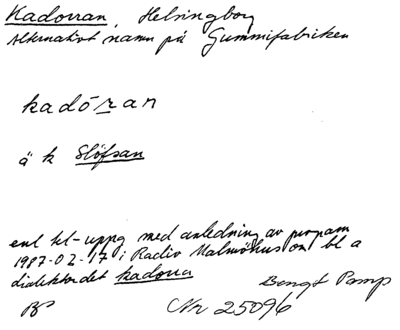 Kadorran, Helsingborg
Alternativt namn på Gummifabriken
kadóran
ä k Slöfsan
enl tel-uppg med anledning av program
1987-02-17 i Radio Malmöhus om bl a
dialektordet kadorra
Bengt Pamp
BP
Nr 25096